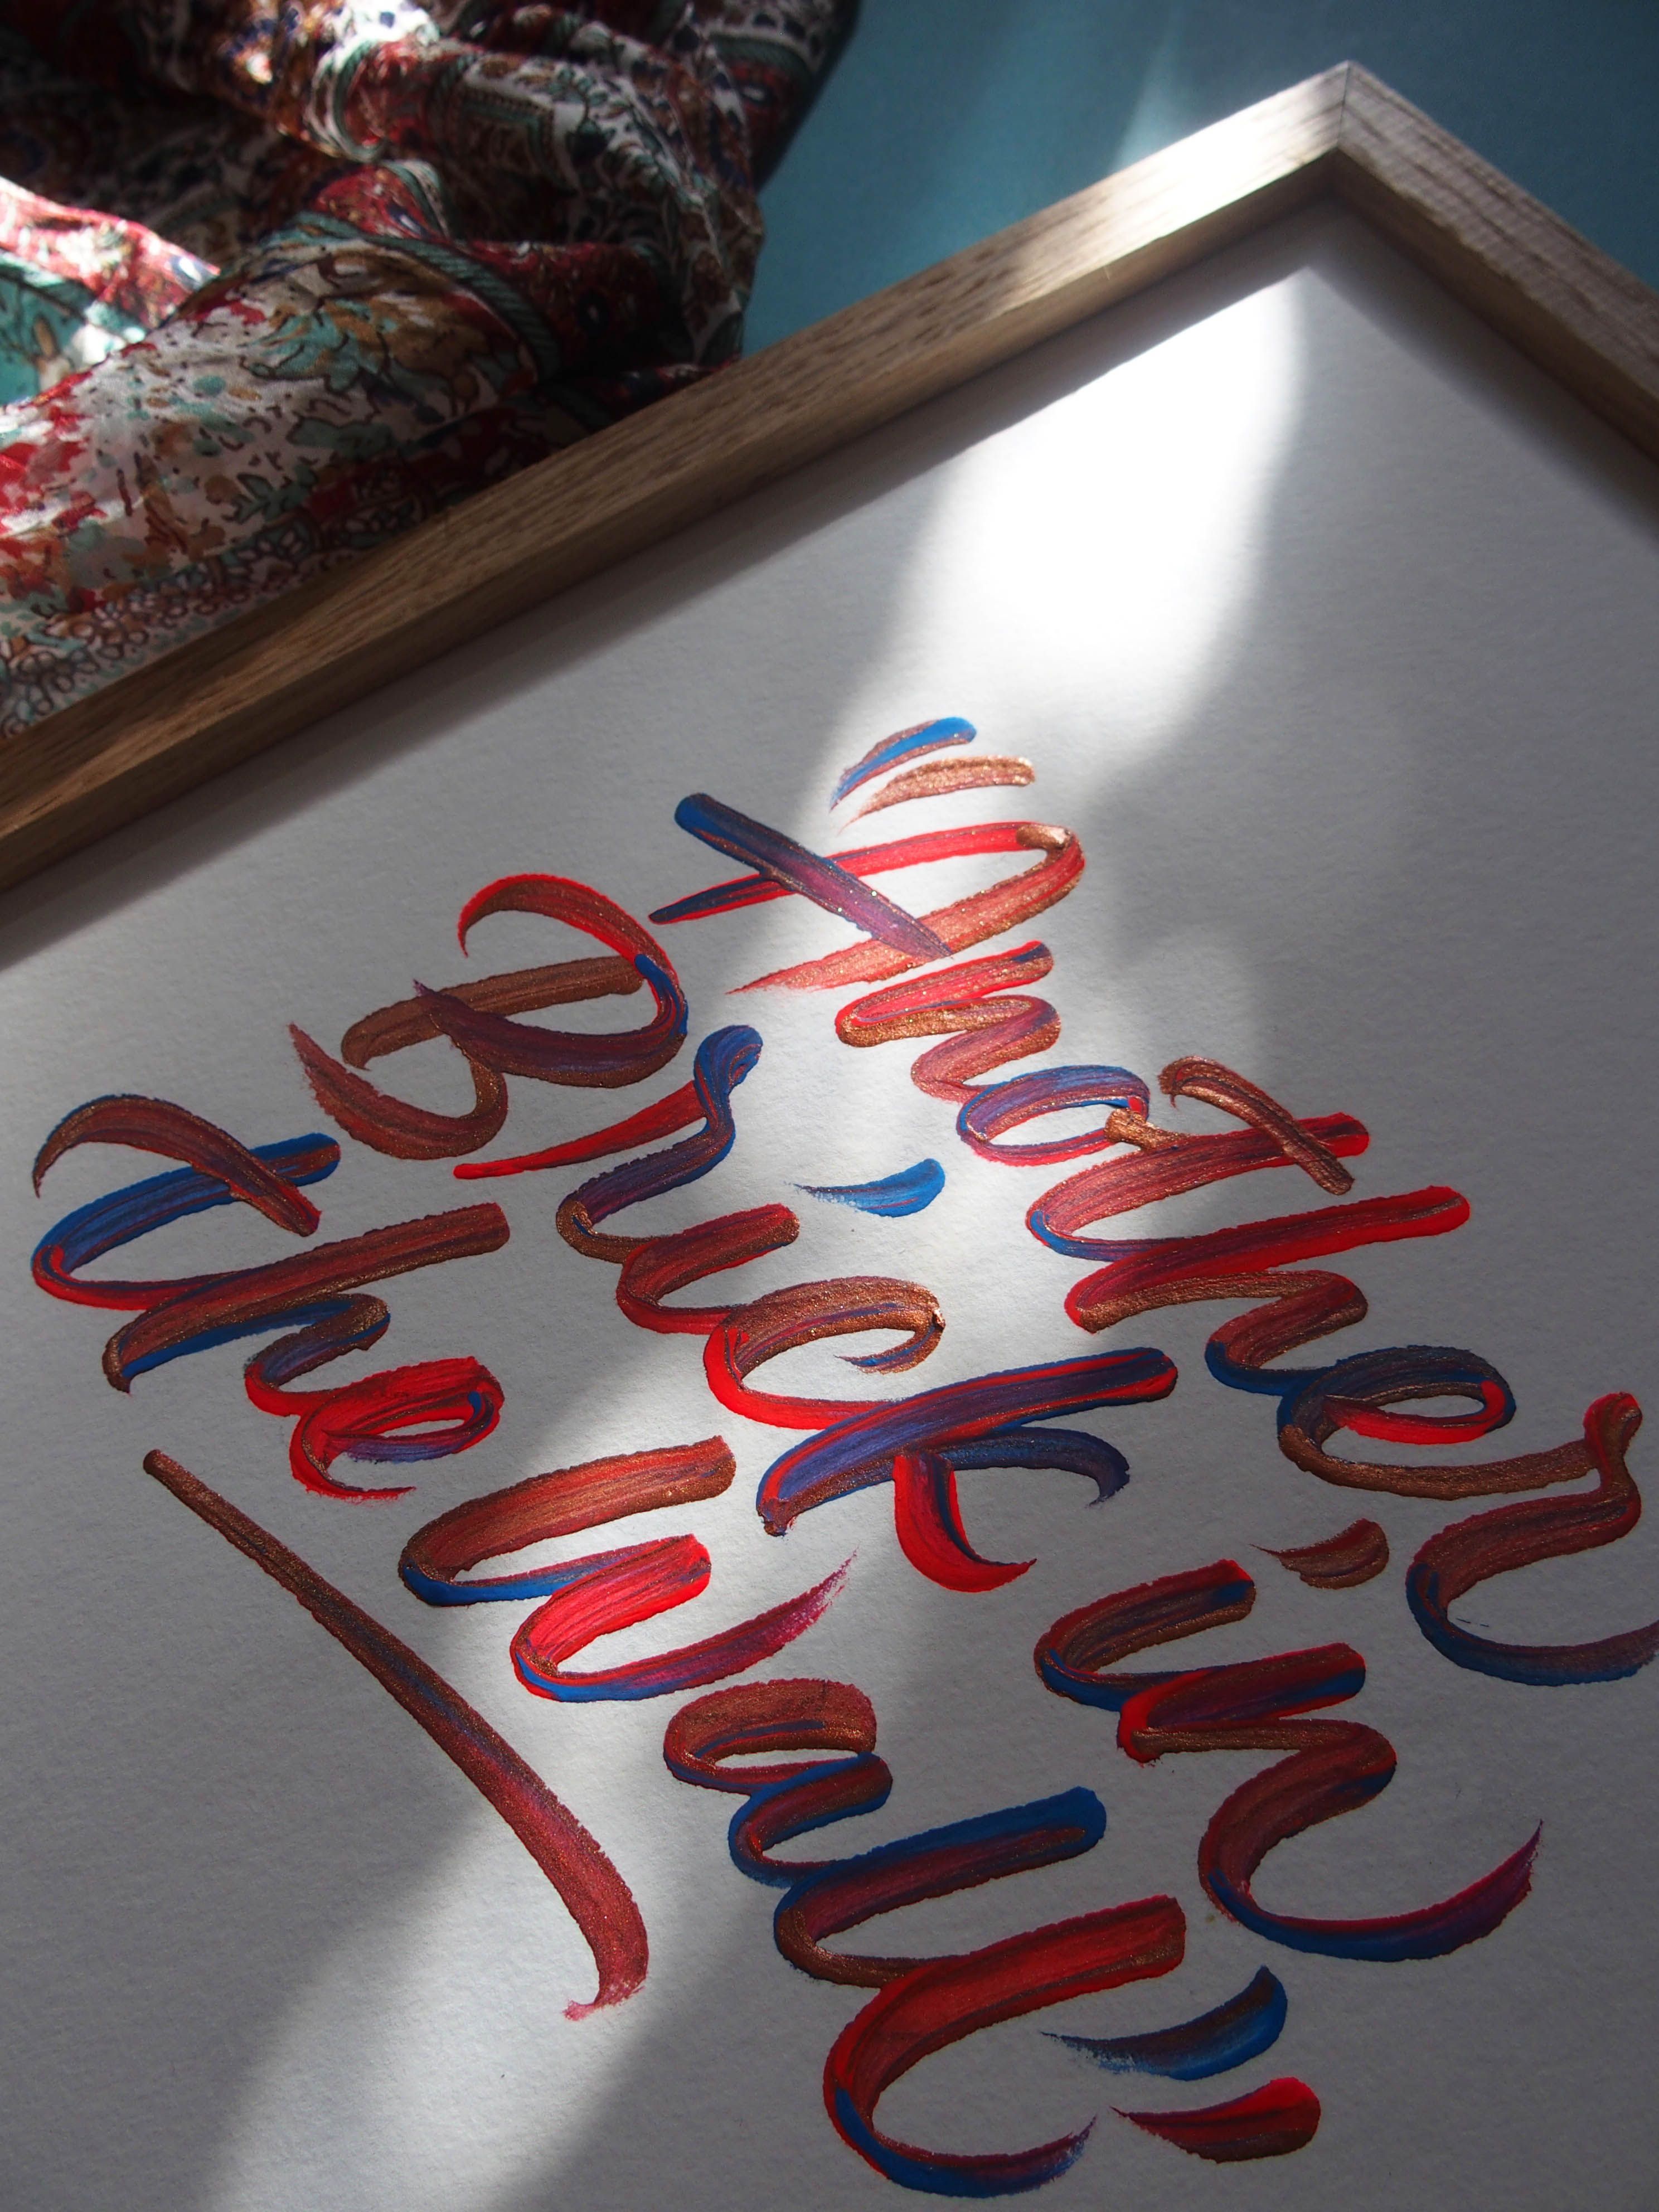 "Another
Brick in
the Wall"